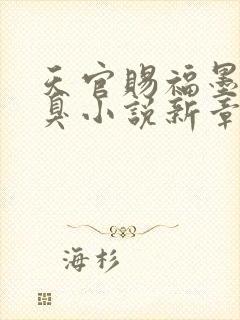 天官赐福墨
臭小说新章
海杉